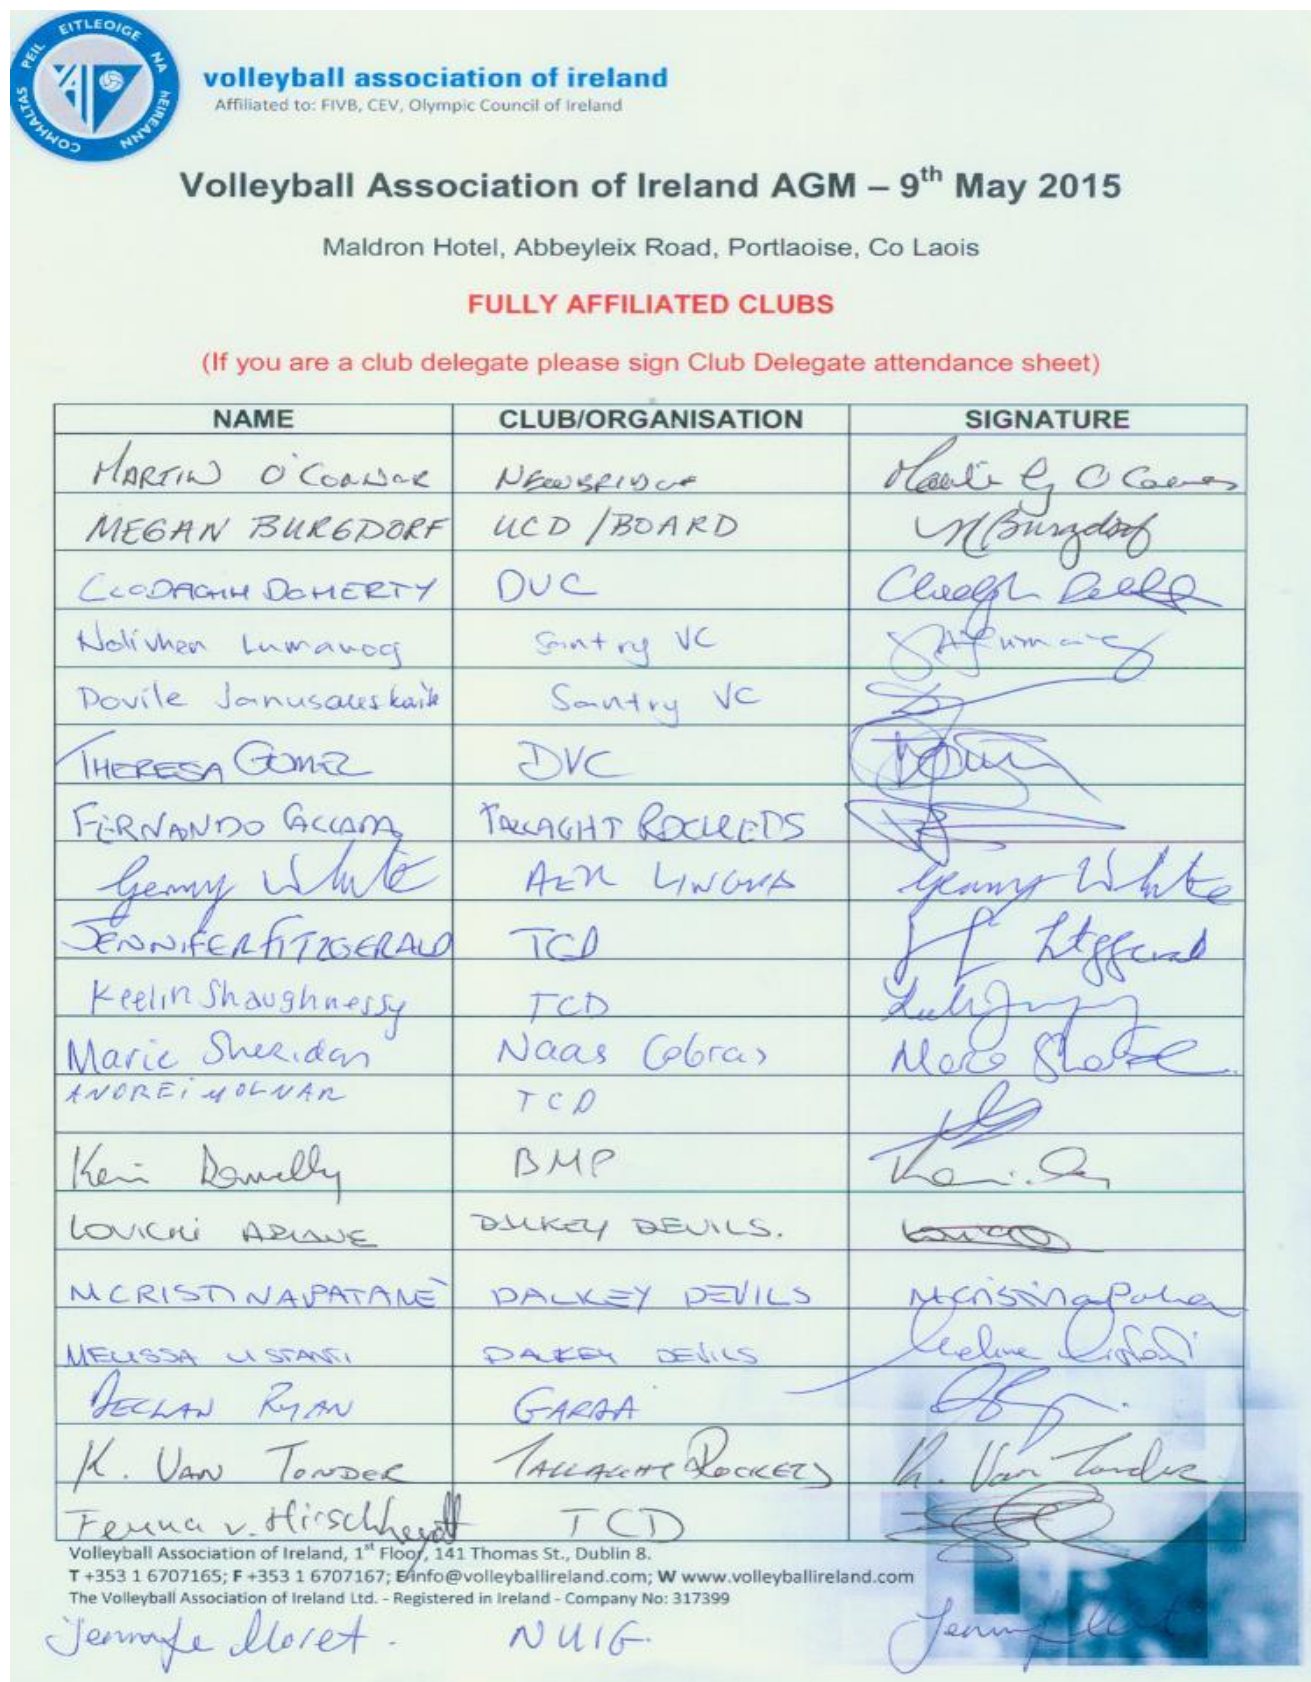 COMHALTAS PEIL EITLEOIGE NA hEIREANN
volleyball association of ireland
Affiliated to: FIVB, CEV, Olympic Council of Ireland
Volleyball Association of Ireland AGM – 9th May 2015
Maldron Hotel, Abbeyleix Road, Portlaoise, Co Laois
FULLY AFFILIATED CLUBS
(If you are a club delegate please sign Club Delegate attendance sheet)
NAME CLUB/ORGANISATION SIGNATURE
MARTIN O'CONNOR NEWBRIDGE
MEGAN BURGDORF UCD / BOARD M Burgdorf
CLODAGHH DOHERTY DVC
Nolivhen Lumanog Santry VC
Dovile Janusauskaite Santry VC
THERESA GOMEZ DVC
FERNANDO TALLAGHT ROCKETS
Gerry White AER LINGUS Gerry White
JENNIFER FITZGERALD TCD
Keelin Shaughnessy TCD
Marie Sheridan Naas Cobras
ANDREI MOLNAR TCD
Donnelly BMP
LOVICHI ARIANE DALKEY DEVILS.
MCRISTINA PATANÈ DALKEY DEVILS
MELISSA DALKEY DEVILS
DECLAN RYAN GARDA
K. VAN TONDER TALLAGHT ROCKETS K. Van Tonder
Fenna v. TCD
Volleyball Association of Ireland, 1st Floor, 141 Thomas St., Dublin 8.
T +353 1 6707165; F +353 1 6707167; E info@volleyballireland.com; W www.volleyballireland.com
The Volleyball Association of Ireland Ltd. - Registered in Ireland - Company No: 317399
Moret. NUIG.